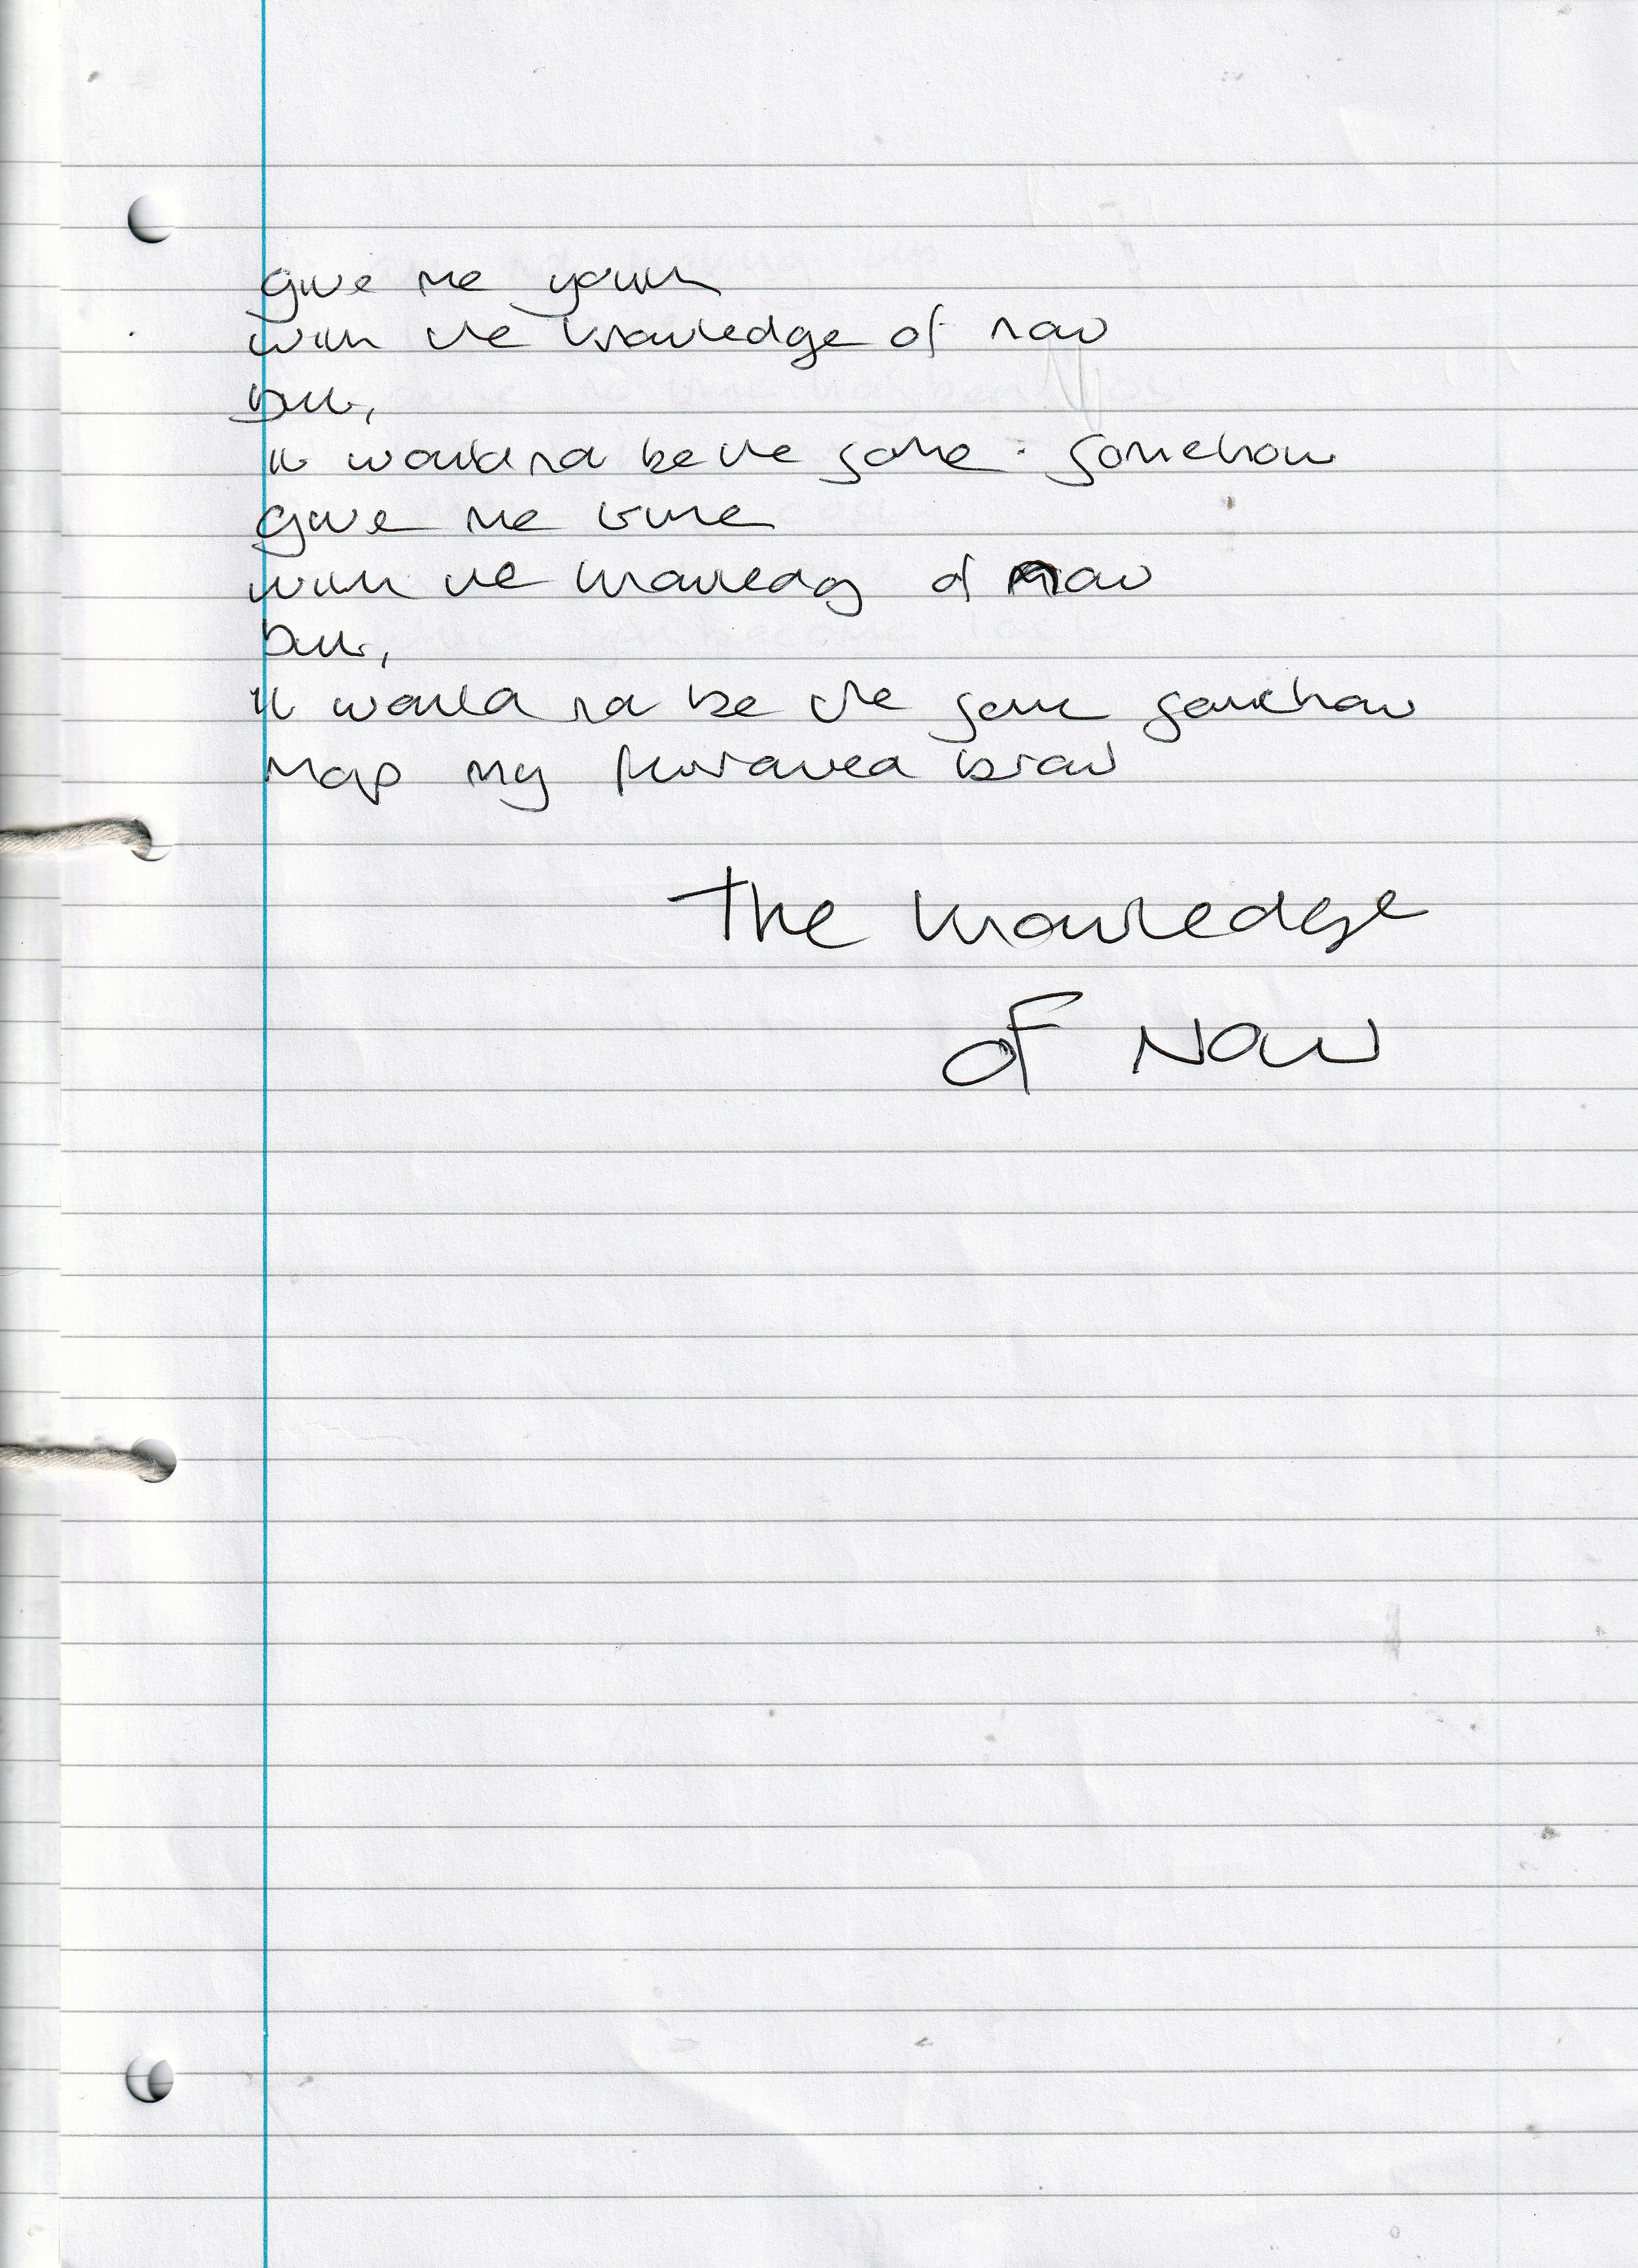 give me youth
with the knowledge of now
but,
it would not be the same. somehow
give me time
with the knowledg of now
but,
it would not be the same somehow
map my furrowed brow
The knowledge
of Now